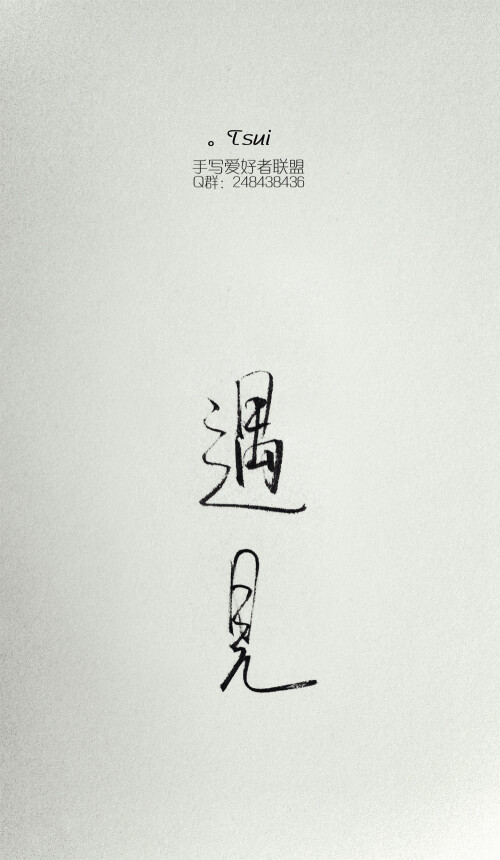 。Tsui
手写爱好者联盟
Q群：248438436
遇
見